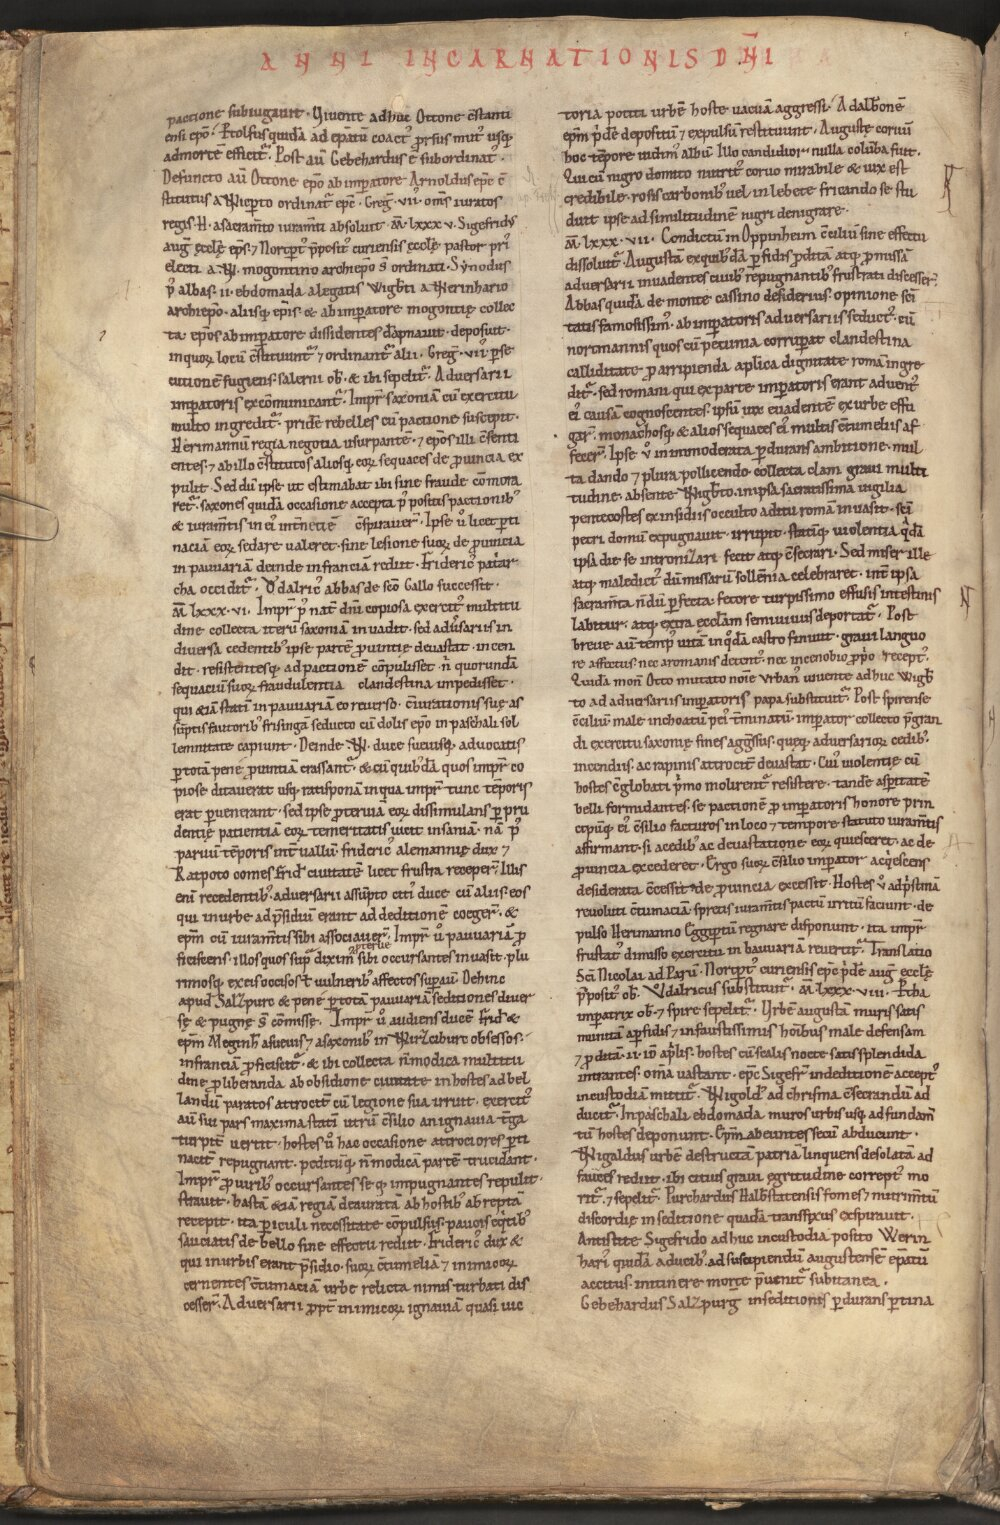 ANNI INCARNATIONIS DN̄I
pactione subiugauit. Viuente adhuc Ottone c̄stanti
ensi ep̄o. Rtolfus quidā ad ep̄atū coact᷒ p̄rsus mut᷒ usq;
ad mortē efficit᷑. Post aū Gebehardus ē subordinat᷒.
Defuncto aū Ottone ep̄o ab imperatore Arnoldus ep̄c ē
stitutus a Wicperto ordinat᷑ ep̄c. Greg̃. vii᷒. om̄s iuratos
regis .H. a sacram̄to iuram̄ti absoluit. M̄. lxxx v. Sigefrid᷒
aug̃ eccłę ep̄s. ⁊ Norcpert᷒ p̄posit᷒ curiensis eccłę pastor pri᷒
electi a .W. mogontino archiep̄o s̄ ordinati. Synodus
p᷒ albas. ii. ebdomada a legatis Wigb̄ti a Werinhario
archiep̄o. aliisq; ep̄is. & ab imperatore mogontię collec
ta. ep̄os ab imperatore dissidentes dāpnauit. deposuit.
in quoꝝ locū c̄stituunt᷑ ⁊ ordinant᷑ alii. Greg̃. vii᷒. perse
cutionē fugiens. salerni ob̄. & ibi sepelit᷑. Aduersarii
imp̄atoris excōmunicant᷑. Imp̄r saxoniā cū exercitu
multo ingredit᷑. pridē rebelles cū pactione suscepit.
Herimannū regia negotia usurpantē. ⁊ ep̄os illi c̄senti
entes. ⁊ ab illo c̄stitutos aliosq; eoꝝ sequaces de p̄uincia ex
pulit. Sed dū ipse ut estimabat ibi sine fraude cōmora
ret᷑. saxones quidā occasione accepta p᷒ positis pactionib᷒
& iuram̄tis in ei᷒ int̄necie c̄spirauer̄. Ipse ů licet perti
naciā eoꝝ sedare ualeret. sine lesione suoꝝ de p̄uincia
in pauuariā deinde in francia rediit. Frideric᷒ patriar
cha occidit᷑. Vodalric᷒ abbas de sc̄o Gallo successit.
M̄. lxxx. vi. Imp̄r p᷒ nat̄ dn̄i copiosa exercit᷒ multitu
dine collecta iterū saxoniā inuadit. sed adūsariis in
diuersa cedentib᷒ ipse partē p̄uintię deuastat. incen
dit. resistentesq; ad pactionē cōpulisset. n̄ quorundā
sequaciū suoꝝ fraudulentia clandestina impedisset.
qui &iā statī in pauuariā eo reuerso. c̄iurationis suę as
sūptis fautorib᷒ frisingā seducto cū dolis ep̄o in paschali sol
lemnitate capiunt. Deinde .W. duce sueuisq; aduocatis
p totā penę p̄uintiā crassant᷑. & cū quib᷒dā quos imp̄r co
piose ditauerat usq; ratisponā in qua imp̄r tunc tēporis
erat peruenerant. sed ipse p̄teruiā eoꝝ dissimulans per pru
dentię patientiā eoꝝ temeritatis uicit insaniā. nā p᷒
paruū tēporis int̄uallū frideric᷒ alemannię dux ⁊
Ratpoto comes Frid̄ ciuitatē licet frustra receper̄. Illis
eni recedentib᷒. aduersarii assūpto citi᷒ duce cū aliis eos
qui in urbe ad p̄sidiū erant ad deditionē coeger̄. &
ep̄m cū iuram̄tis sibi associauer̄. Imp̄r ů pauuariā p̄
pterue
ficiscens. illos quos sup̄ dixim᷒ sibi occursantes inuasit. plu
rimosq; ex eis occisos t̄ uulnerib᷒ affectos supauit. Dehinc
apud Salzpurc & penę p totā pauuariā seditiones diuer
sę & pugnę s̄ cōmissę. Imp̄r ů audiens ducē Frid̄ &
ep̄m Meginh̄ a sueuis ⁊ a saxonib᷒ in Wirziburc obsessos.
in franciā p̄ficiscit᷑. & ibi collecta n̄ modica multitu
dine p liberanda ab obsidione ciuitate in hostes ad bel
landū paratos attrocit̄ cū legione sua irruit. exercit᷒
aū sui pars maxima statī utrū c̄silio an ignauia t̄ga
turpit̄ uertit. hostes ů hac occasione attrociores perti
nacit̄ repugnant. peditūq; n̄ modicā partē trucidant.
Imp̄r p̄ uirib᷒ occursantes seq; impugnantes repulit.
strauit. hastā &iā regiā deauratā ab hostib᷒ abreptā
recepit. ita periculi necessitate cōpulsus. paucis eq̄tib᷒
sauciatis de bello sine effectu rediit. Frideric᷒ dux &
qui in urbis erant p̄sidio. suoꝝ c̄tumeliā ⁊ inimicoꝝ
cernentes c̄tumaciā urbe relicta nimis turbati dis
cesser̄. Aduersarii p̄pt̄ inimicoꝝ ignauiā quasi uic
toria potita urbē hoste uacuā aggressi. Adalb̄onē
ep̄m p̄dē depositū ⁊ expulsū restituunt. Augustę coruū
hoc tēpore uidim᷒ albū. Illo candidior nulla colūba fuit.
Qui cū nigro domito nutrit᷒ coruo mirabile & uix est
credibile. rosis carbonib᷒ uel in lebete fricando se stu
duit ipse ad similitudinē nigri denigrare.
M̄. lxxx. vii. Condictū in Oppinheim c̄ciliū sine effectu
dissoluit᷑. Augustā ex quib᷒dā perfidis p̄ditā atq; p̄missā
aduersarii inuadentes ciuib᷒ repugnantib᷒ frustrati discesser̄.
Abbas quidā de monte cassino desiderius. opinione sc̄i
tatis famosissim᷒. ab imperatoris aduersariis seduct᷒. cū
nortmannis quos cū pecunia corruperat clandestina
calliditate p̄ arripienda aplica dignitate romā ingre
dit᷑. sed romani qui ex parte imperatoris erant aduent᷒
ei᷒ causā cognoscentes. ipsū uix euadentē ex urbe effu
gar̄. monachosq; & alios sequaces ei᷒ multis c̄tumeliis af
fecer̄. Ipse ů in immoderata perdurans ambitione. mul
ta dando ⁊ plura pollicendo. collecta clam graui multi
tudine. absente Wigb̄to. in ipsa sacratissima uigilia
pentecostes ex insidiis occulto aditu romā inuasit. sc̄i
petri domū expugnauit. irrupit. statīq; uiolentia q̄dā
ipsa die se intronizari fecit atq; c̄secrari. Sed miser ille
atq; maledict᷒ dū missarū sollēnia celebraret. int̄ ipsa
sacram̄ta n̄dū perfecta. fetore turpissimo effusis intestinis
labitur. atq; extra ecclam semiuiuus deportat᷑. Post
breue aū temp᷒ uitā in q̄dā castro finiuit. graui languo
re affectus. nec a romanis detent᷒. nec in cenobio p̄p̄o recept᷒.
Quidā mon̄ Otto mutato noīe urban᷒ uiuente adhuc Wigb̄
to ad aduersariis imperatoris papa substituit᷑. Post spirense
c̄ciliū male inchoatū pei᷒ t̄minatū. imperator collecto p̄gran
di exercitu saxonię fines agḡssus. queq; aduersarioꝝ cedib᷒.
incendiis. ac rapinis attrocit̄ deuastat. Cui᷒ uiolentię cū
hostes c̄globati p̄mo molirent᷑ resistere. tandē asperitatē
belli formidantes. se pactionē p̄ imperatoris honore prin
cipūq; ei᷒ c̄silio facturos in loco ⁊ tempore statuto iuram̄tis
affirmant. si a cedib᷒ ac deuastatione eoꝝ quiesceret. ac de
p̄uincia excederet. Ergo suoꝝ c̄silio imperator acq̄escens
desiderata c̄cessit. de p̄uincia excessit. Hostes ů ad p̄stinā
reuoluti c̄tumaciā. spretis iuram̄tis pactū irritū faciunt. de
pulso Hermanno Eggiptū regnare disponunt. ita imp̄r
frustrat᷒ dimisso exercitu in bauuariā reuertit᷑. Translatio
Sc̄i Nicolai ad Parū. Nortpt᷒ curiensis ep̄c p̄dē aug̃ eccłę
p̄posit᷒ ob̄. Vdalricus substituit᷑. M̄. lxxx. viii. Rtha
imperatrix ob̄. ⁊ spire sepelit᷑. Vrbē augustā muris satis
munitā a perfidis ⁊ infaustissimis hōibus male defensam
⁊ p̄ditā. ii. id᷒ ap̄lis. hostes cū scalis nocte satis splendida
intrantes. om̄a uastant. ep̄c Sigefr̄ in deditionē accept᷒
in custodiā mittit᷑. Wigold᷒ ad chrisma c̄secrandū ad
ducit᷑. In paschali ebdomada muros urbis usq; ad fundam̄
tū hostes deponunt. Ep̄m abeuntes secū abducunt.
Wigaldus urbē destructā patriā linquens desolatā ad
fauces rediit. ibi citius graui egritudine corrept᷒ mo
rit᷑. ⁊ sepelit᷑. Purchardus Halb̄statensis fomes ⁊ nutrim̄tū
discordię in seditione quadā transfixus exspirauit.
Antistite Sigefrido adhuc in custodia posito Werin
hari᷒ quidā aduectib᷒. ad suscipiendū augustensē ep̄atū
accitus. in itinere morte p̄uenit᷑ subitanea.
Gebehardus Salzpurg̃ in seditionis perdurans pertina